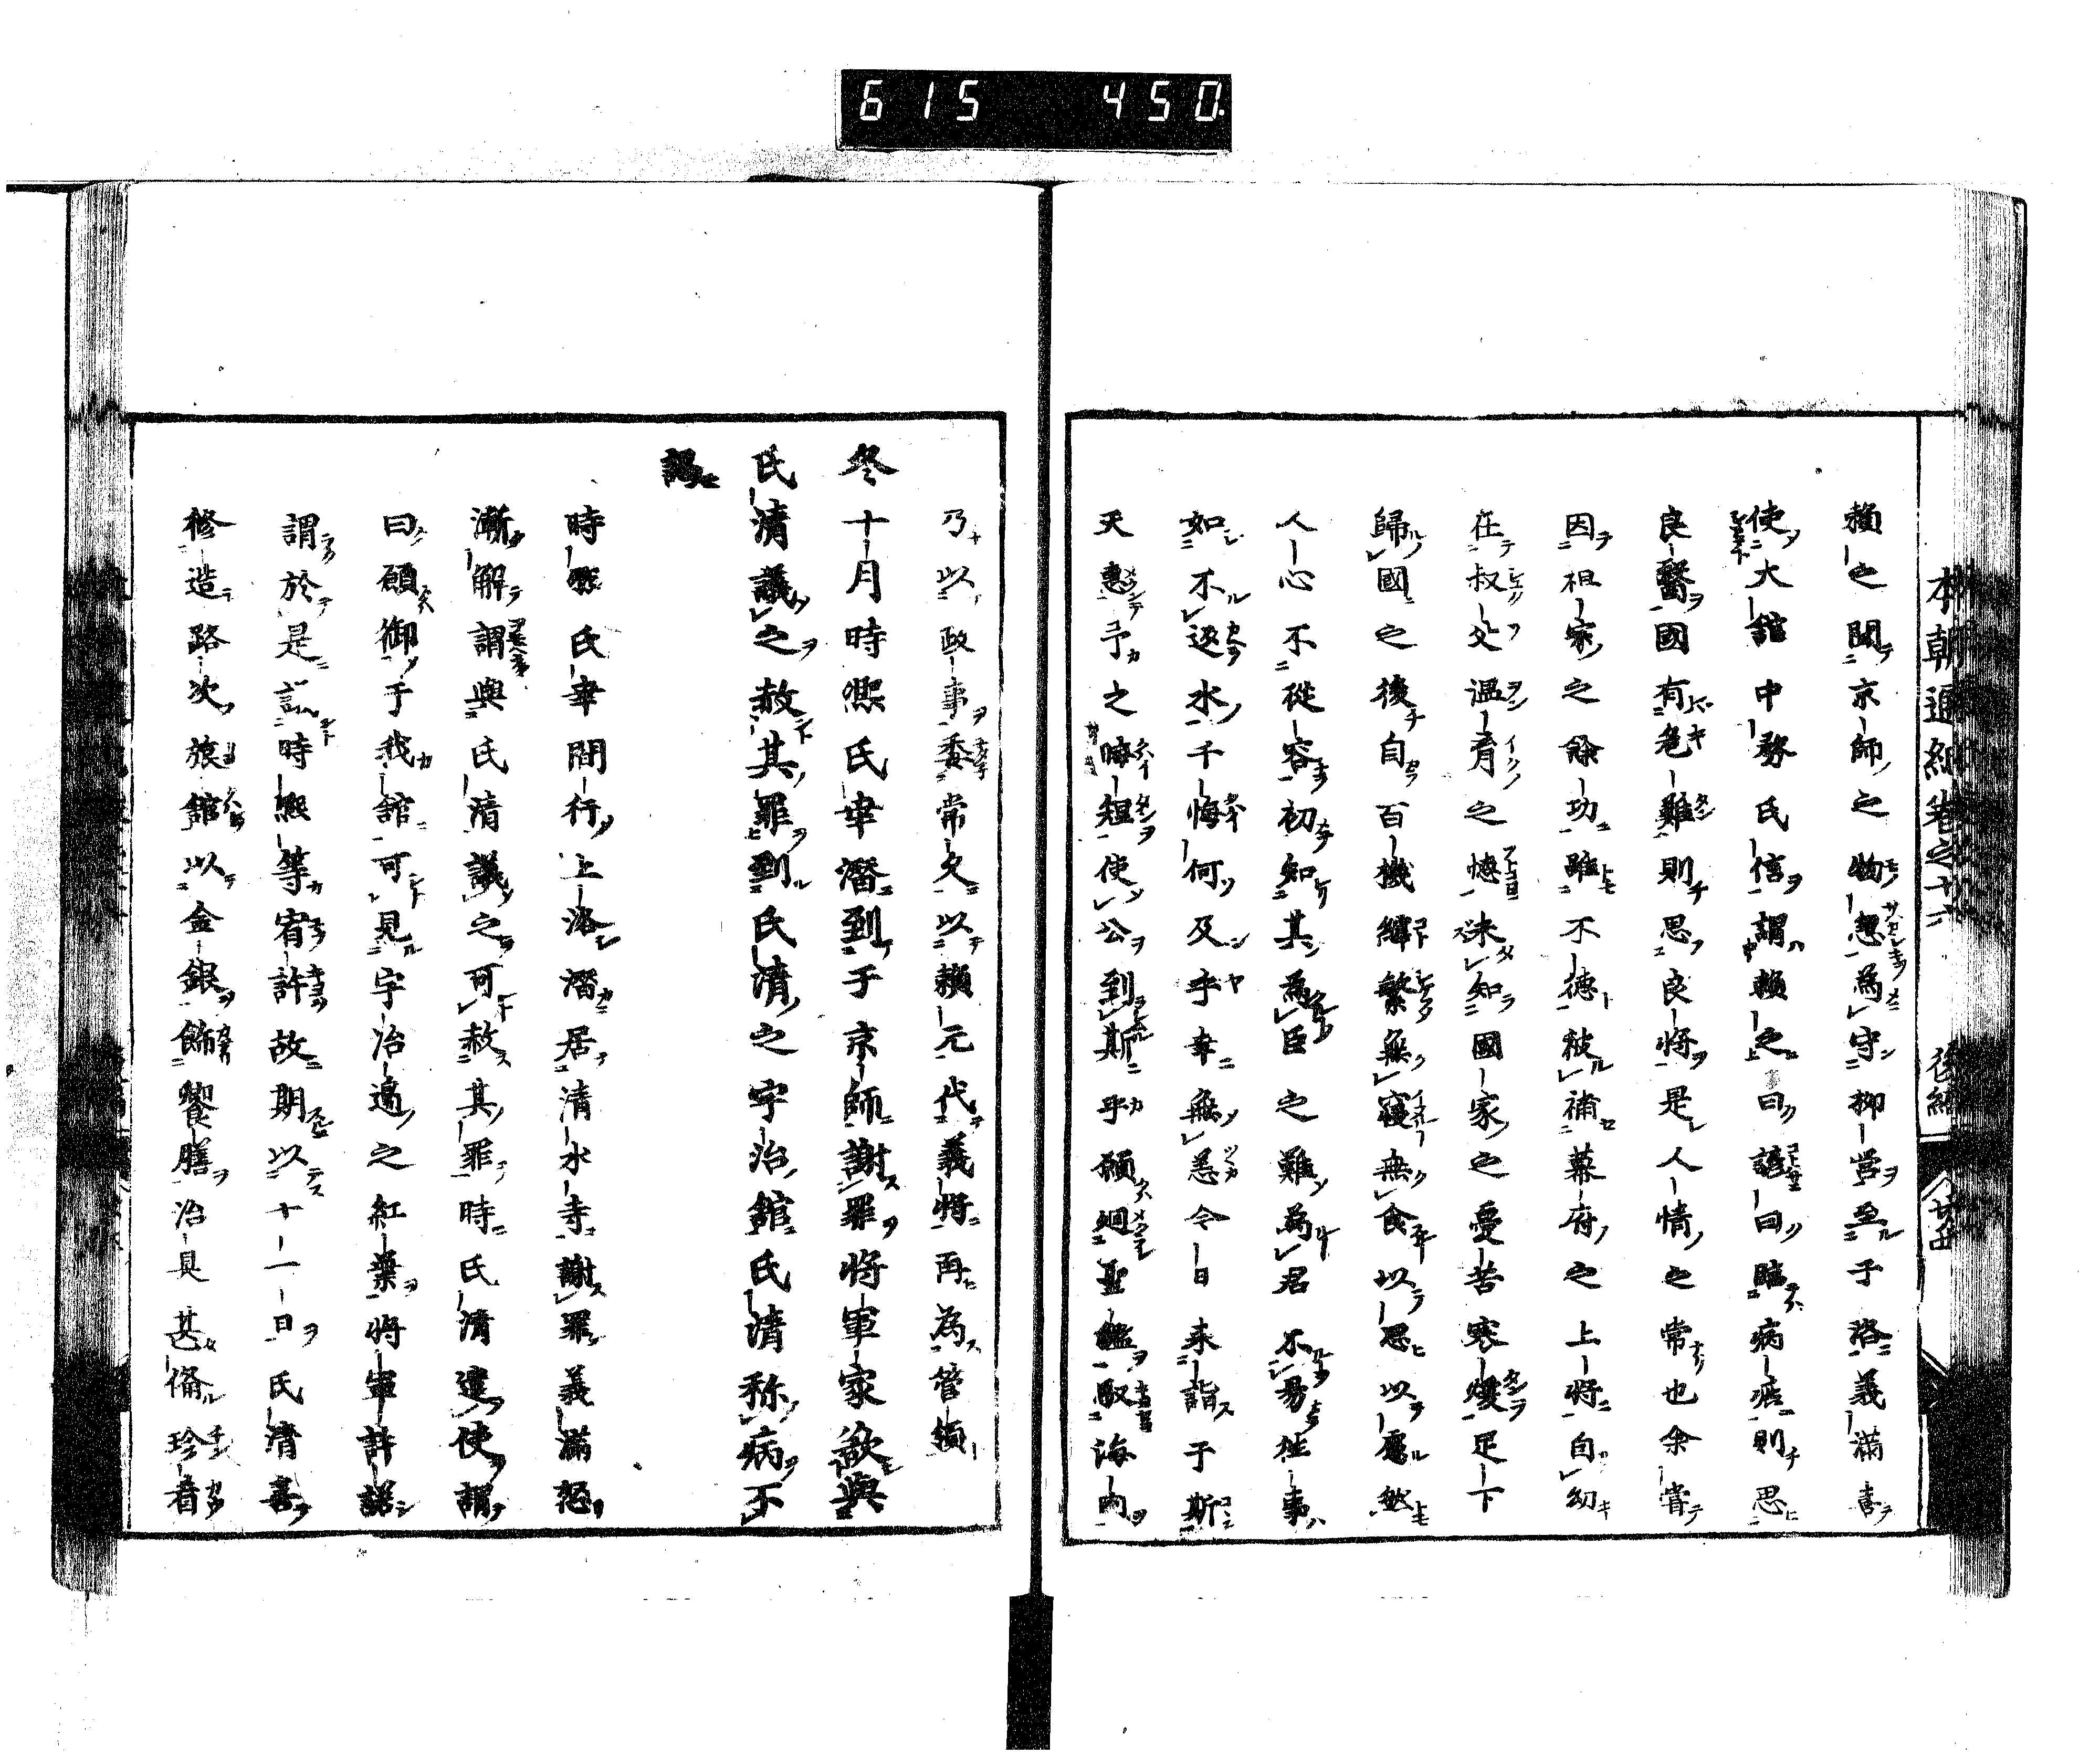 615 450.
本朝通紀巻之十六 後編
頼之聞京師之物怱為守柳営至于洛義満喜
使大舘中務氏信謂頼之曰諺曰臨病症則思
良醫國有危難則思良将是人情之常也余嘗
因祖家之餘功雖不徳被補幕府之上将自幼
在叔父温育之懐未知國家之憂苦寒煖足下
歸國之後自百機繹繁無寝無食以思以慮然
人心不従容初知其為臣之難為君不易往事
如不返水千悔何及乎幸無恙今日来詣于斯
天惠予之晦短使公到斯乎願廻聖鑑馭海内
乃以政事委常久以頼元代義将再為管領
冬十月時熈氏幸潜到于京師謝罪将軍家欲與
氏清議之赦其罪到氏清之宇治舘氏清称病不
謁
時熈氏幸間行上洛潜居清水寺謝罪義満怒
漸解謂與氏清議之可赦其罪時氏清遣使謂
曰願御于我舘可見宇治邉之紅葉将軍許諾
謂於是議時熈等宥許故期以十一日氏清喜
修造路次旅舘以金銀飾饗膳治具甚偹珍肴